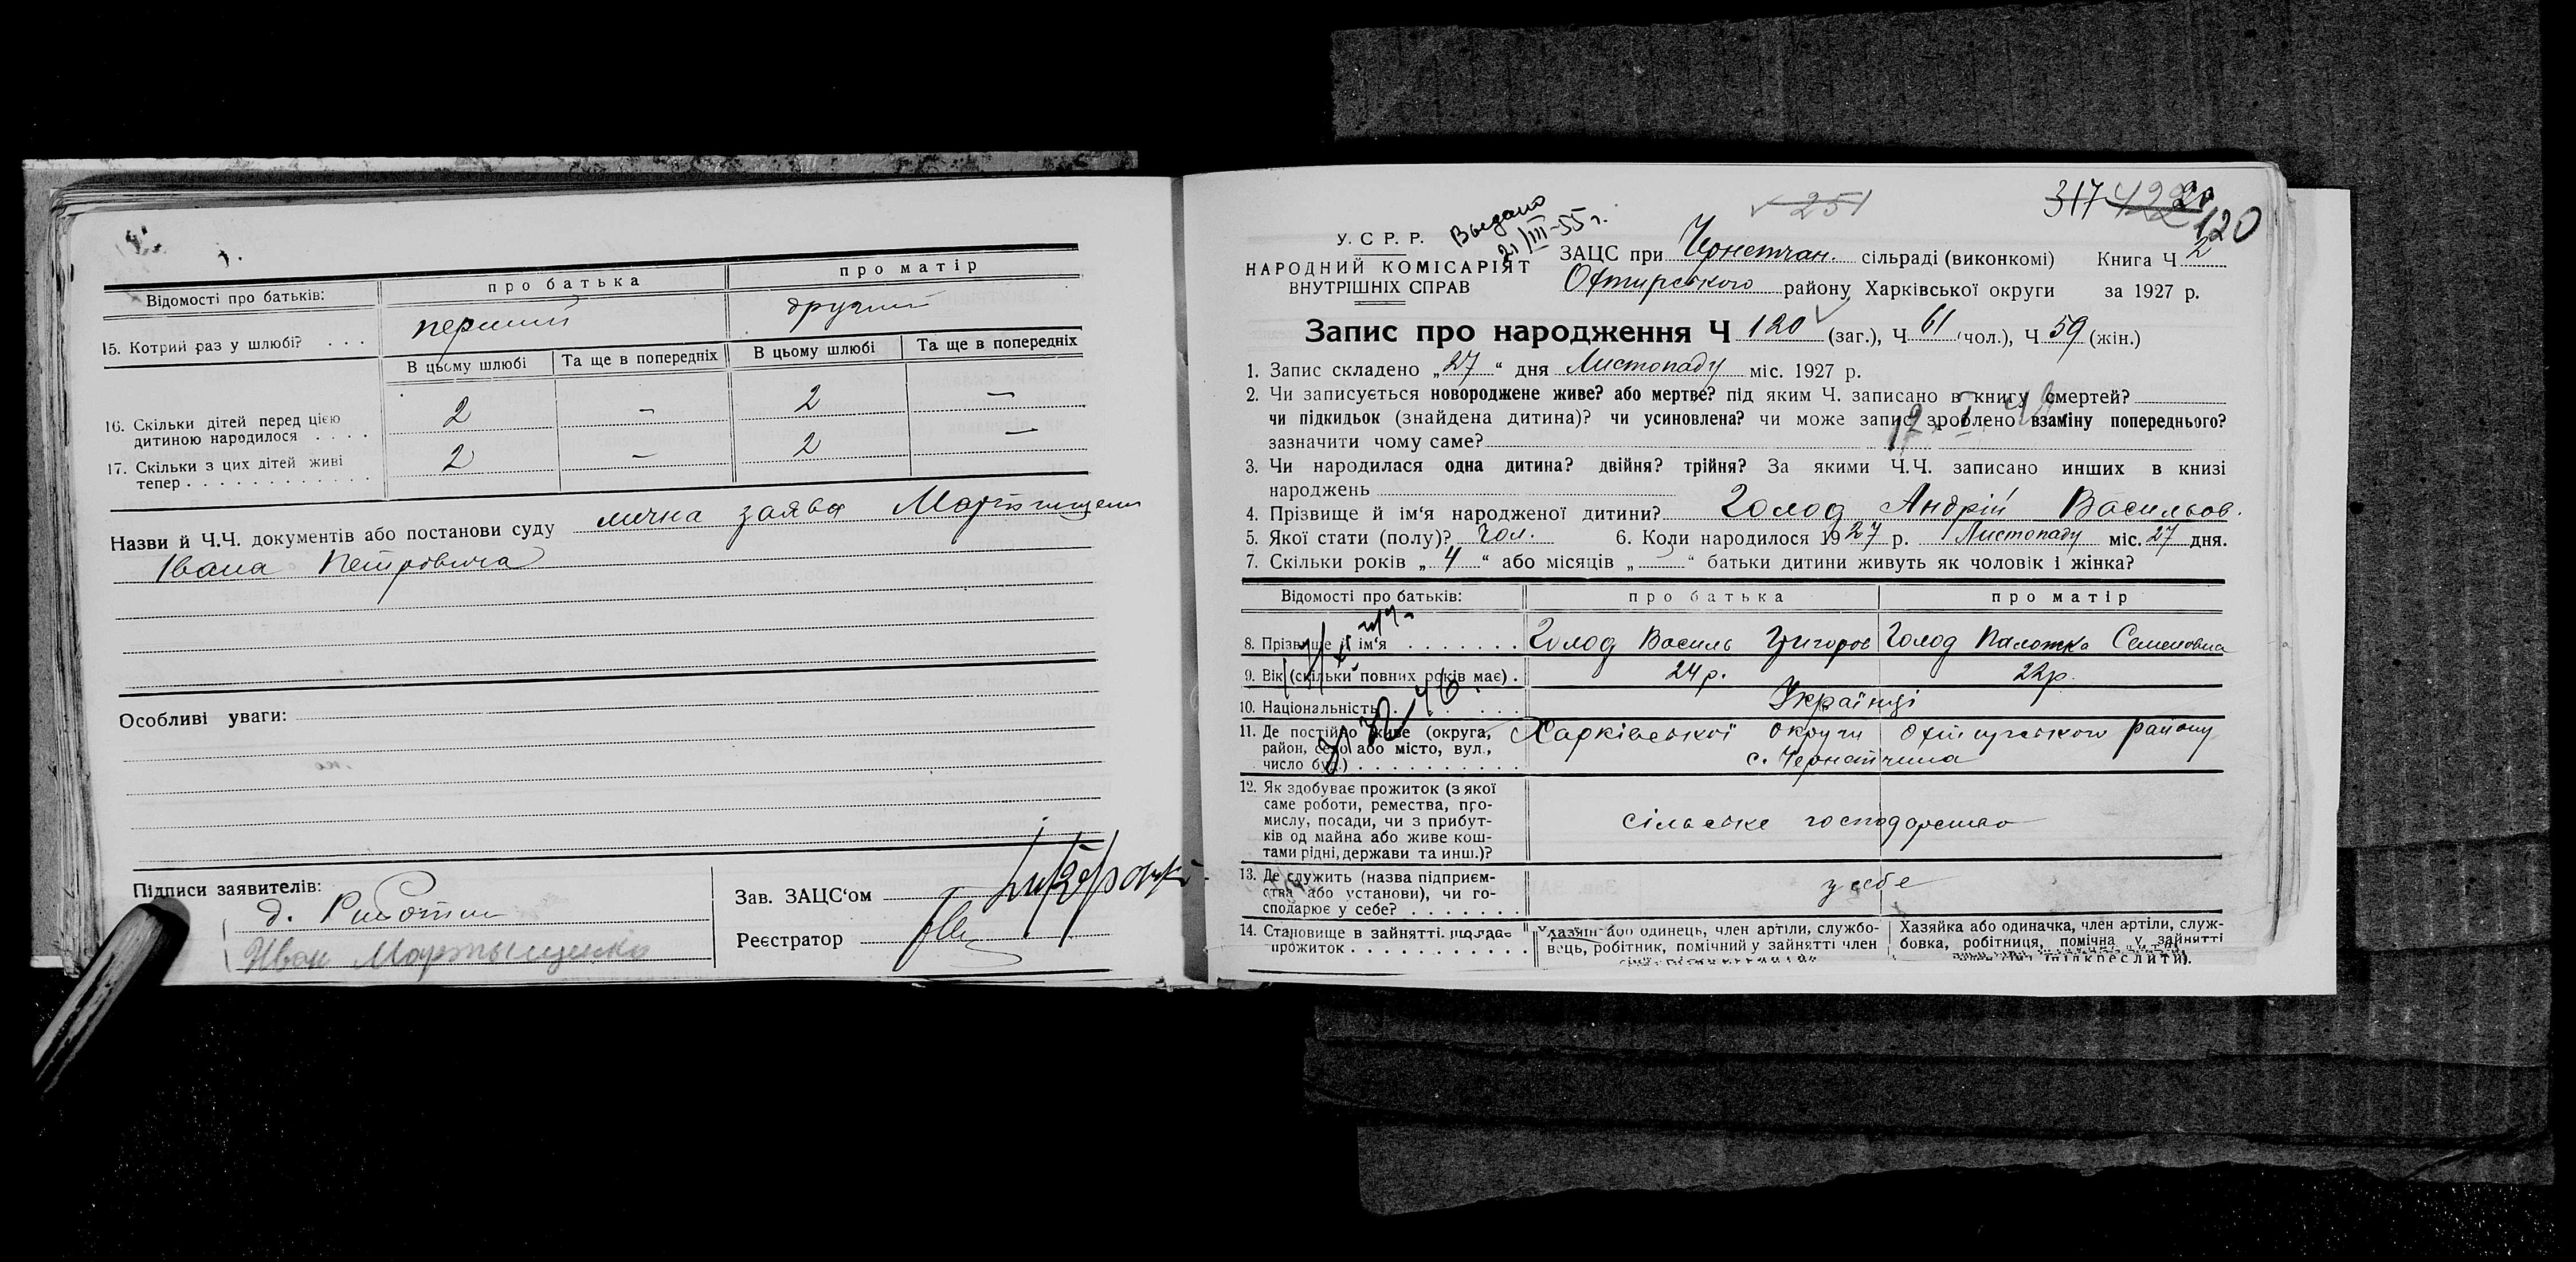 Відомості про батьків:
про батька
про матір
15. Котрий раз у шлюбі? . . .
перший
другий
В цьому шлюбі
Та ще в попередніх
В цьому шлюбі
Та ще в попередніх
16. Скільки дітей перед цією
дитиною народилося . . . .
2
—
2
—
17. Скільки з цих дітей живі
тепер . . . . . . . . . . . .
2
—
2
—
Назви й Ч.Ч. документів або постанови суду лична заява
Івана Петровича
Особливі уваги:
Підписи заявителів:
Иван Мартыщенко
Зав. ЗАЦС‘ом
Реєстратор
У. С Р. Р.
НАРОДНИЙ КОМІСАРІЯТ
ВНУТРІШНІХ СПРАВ
Выдано
21/III-55 г.
251
317 422
120
ЗАЦС при Чернетчан. сільраді (виконкомі) Книга Ч 2
Охтирського району Харківської округи за 1927 р.
Запис про народження Ч 120 (заг.), Ч 61 (чол.), Ч 59 (жін.)
1. Запис складено „27“ дня Листопаду міс. 1927 р.
2. Чи записується новороджене живе? або мертве? під яким Ч. записано в книгу смертей?
чи підкидьок (знайдена дитина)? чи усиновлена? чи може запис зроблено взаміну попереднього?
зазначити чому саме?
3. Чи народилася одна дитина? двійня? трійня? За якими Ч.Ч. записано инших в книзі
народжень
4. Прізвище й ім‘я народженої дитини? Голод Андрій Васильов.
5. Якої стати (полу)? Чол. 6. Коли народилося 1927 р. Листопаду міс. 27 дня.
7. Скільки років „4“ або місяців „ “ батьки дитини живуть як чоловік і жінка?
Відомості про батьків:
про батька
про матір
8. Прізвище й ім‘я . . . . . . .
Голод Василь Григоров
Голод Палажка Семеновна
9. Вік (скільки повних років має) .
24 р.
22 р.
10. Національність . . . . . .
Українці
11. Де постійно живе (округа,
район, село або місто, вул.,
число буд.) . . . . . . . . . .
Харківської округи Охтирського району
с. Чернетчина
12. Як здобуває прожиток (з якої
саме роботи, ремества, про-
мислу, посади, чи з прибут-
ків од майна або живе кош-
тами рідні, держави та инш.)?
сільське господарство
13. Де служить (назва підприєм-
ства або установи), чи го-
сподарює у себе? . . . . . . .
у себе
14. Становище в зайнятті, що дає
прожиток . . . . . . . . . . .
Хазяїн або одинець, член артіли, службо-
вець, робітник, помічний у зайнятті член
Хазяйка або одиначка, член артіли, служ-
бовка, робітниця, помічна у зайнятті
(підкреслити).